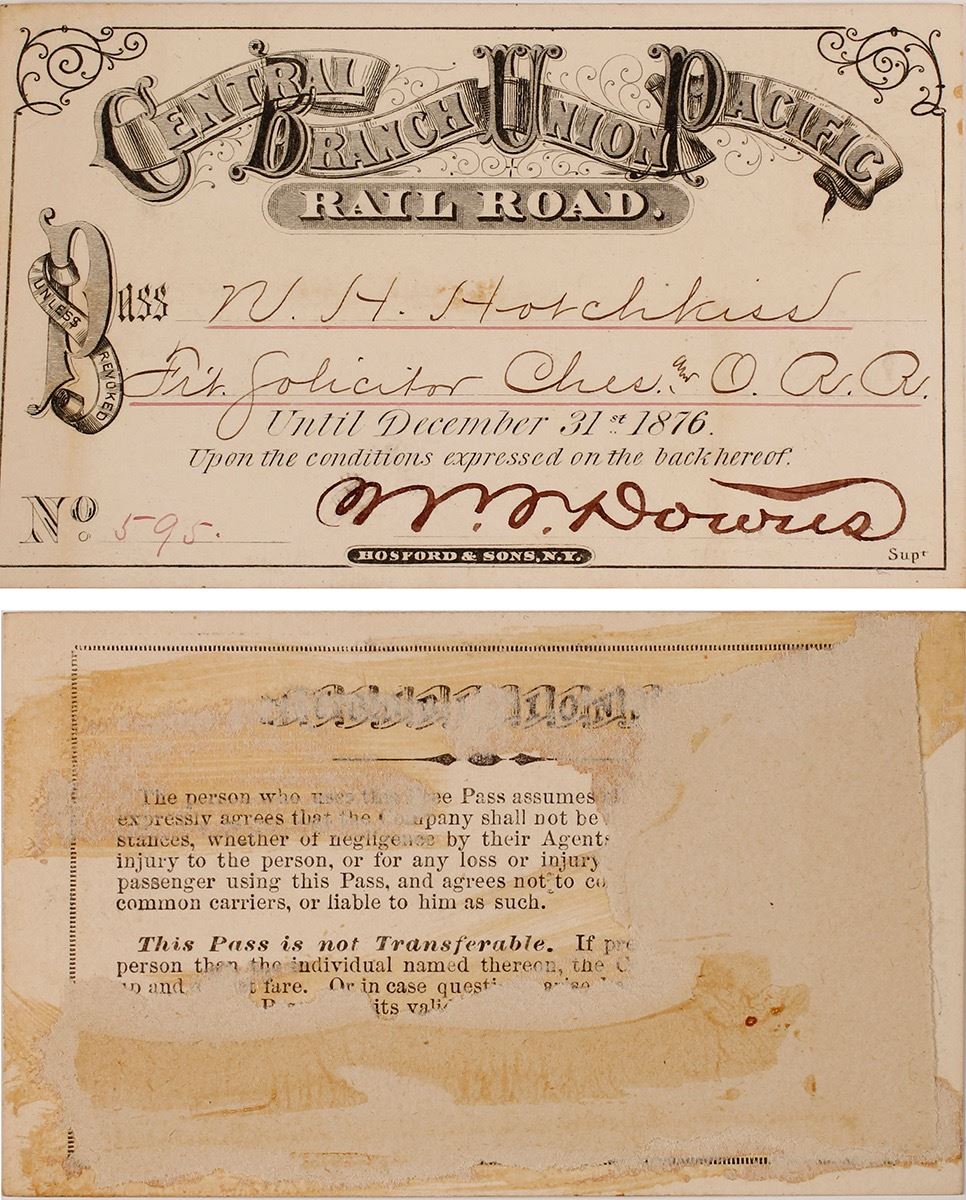 CENTRAL BRANCH UNION PACIFIC
RAIL ROAD.
Pass W. H. Hotchkiss
UNLESS REVOKED
Frt. Solicitor Ches. and O. R. R.
Until December 31st 1876.
Upon the conditions expressed on the back hereof.
No. 595.
W. F. Downs
Supt
HOSFORD & SONS, N.Y.
The person who uses this Free Pass assumes
expressly agrees that the Company shall not be
stances, whether of negligence by their Agents
injury to the person, or for any loss or injury
passenger using this Pass, and agrees not to co
common carriers, or liable to him as such.
This Pass is not Transferable. If pre
person than the individual named thereon, the C
up and fare. Or in case question arise
its vali